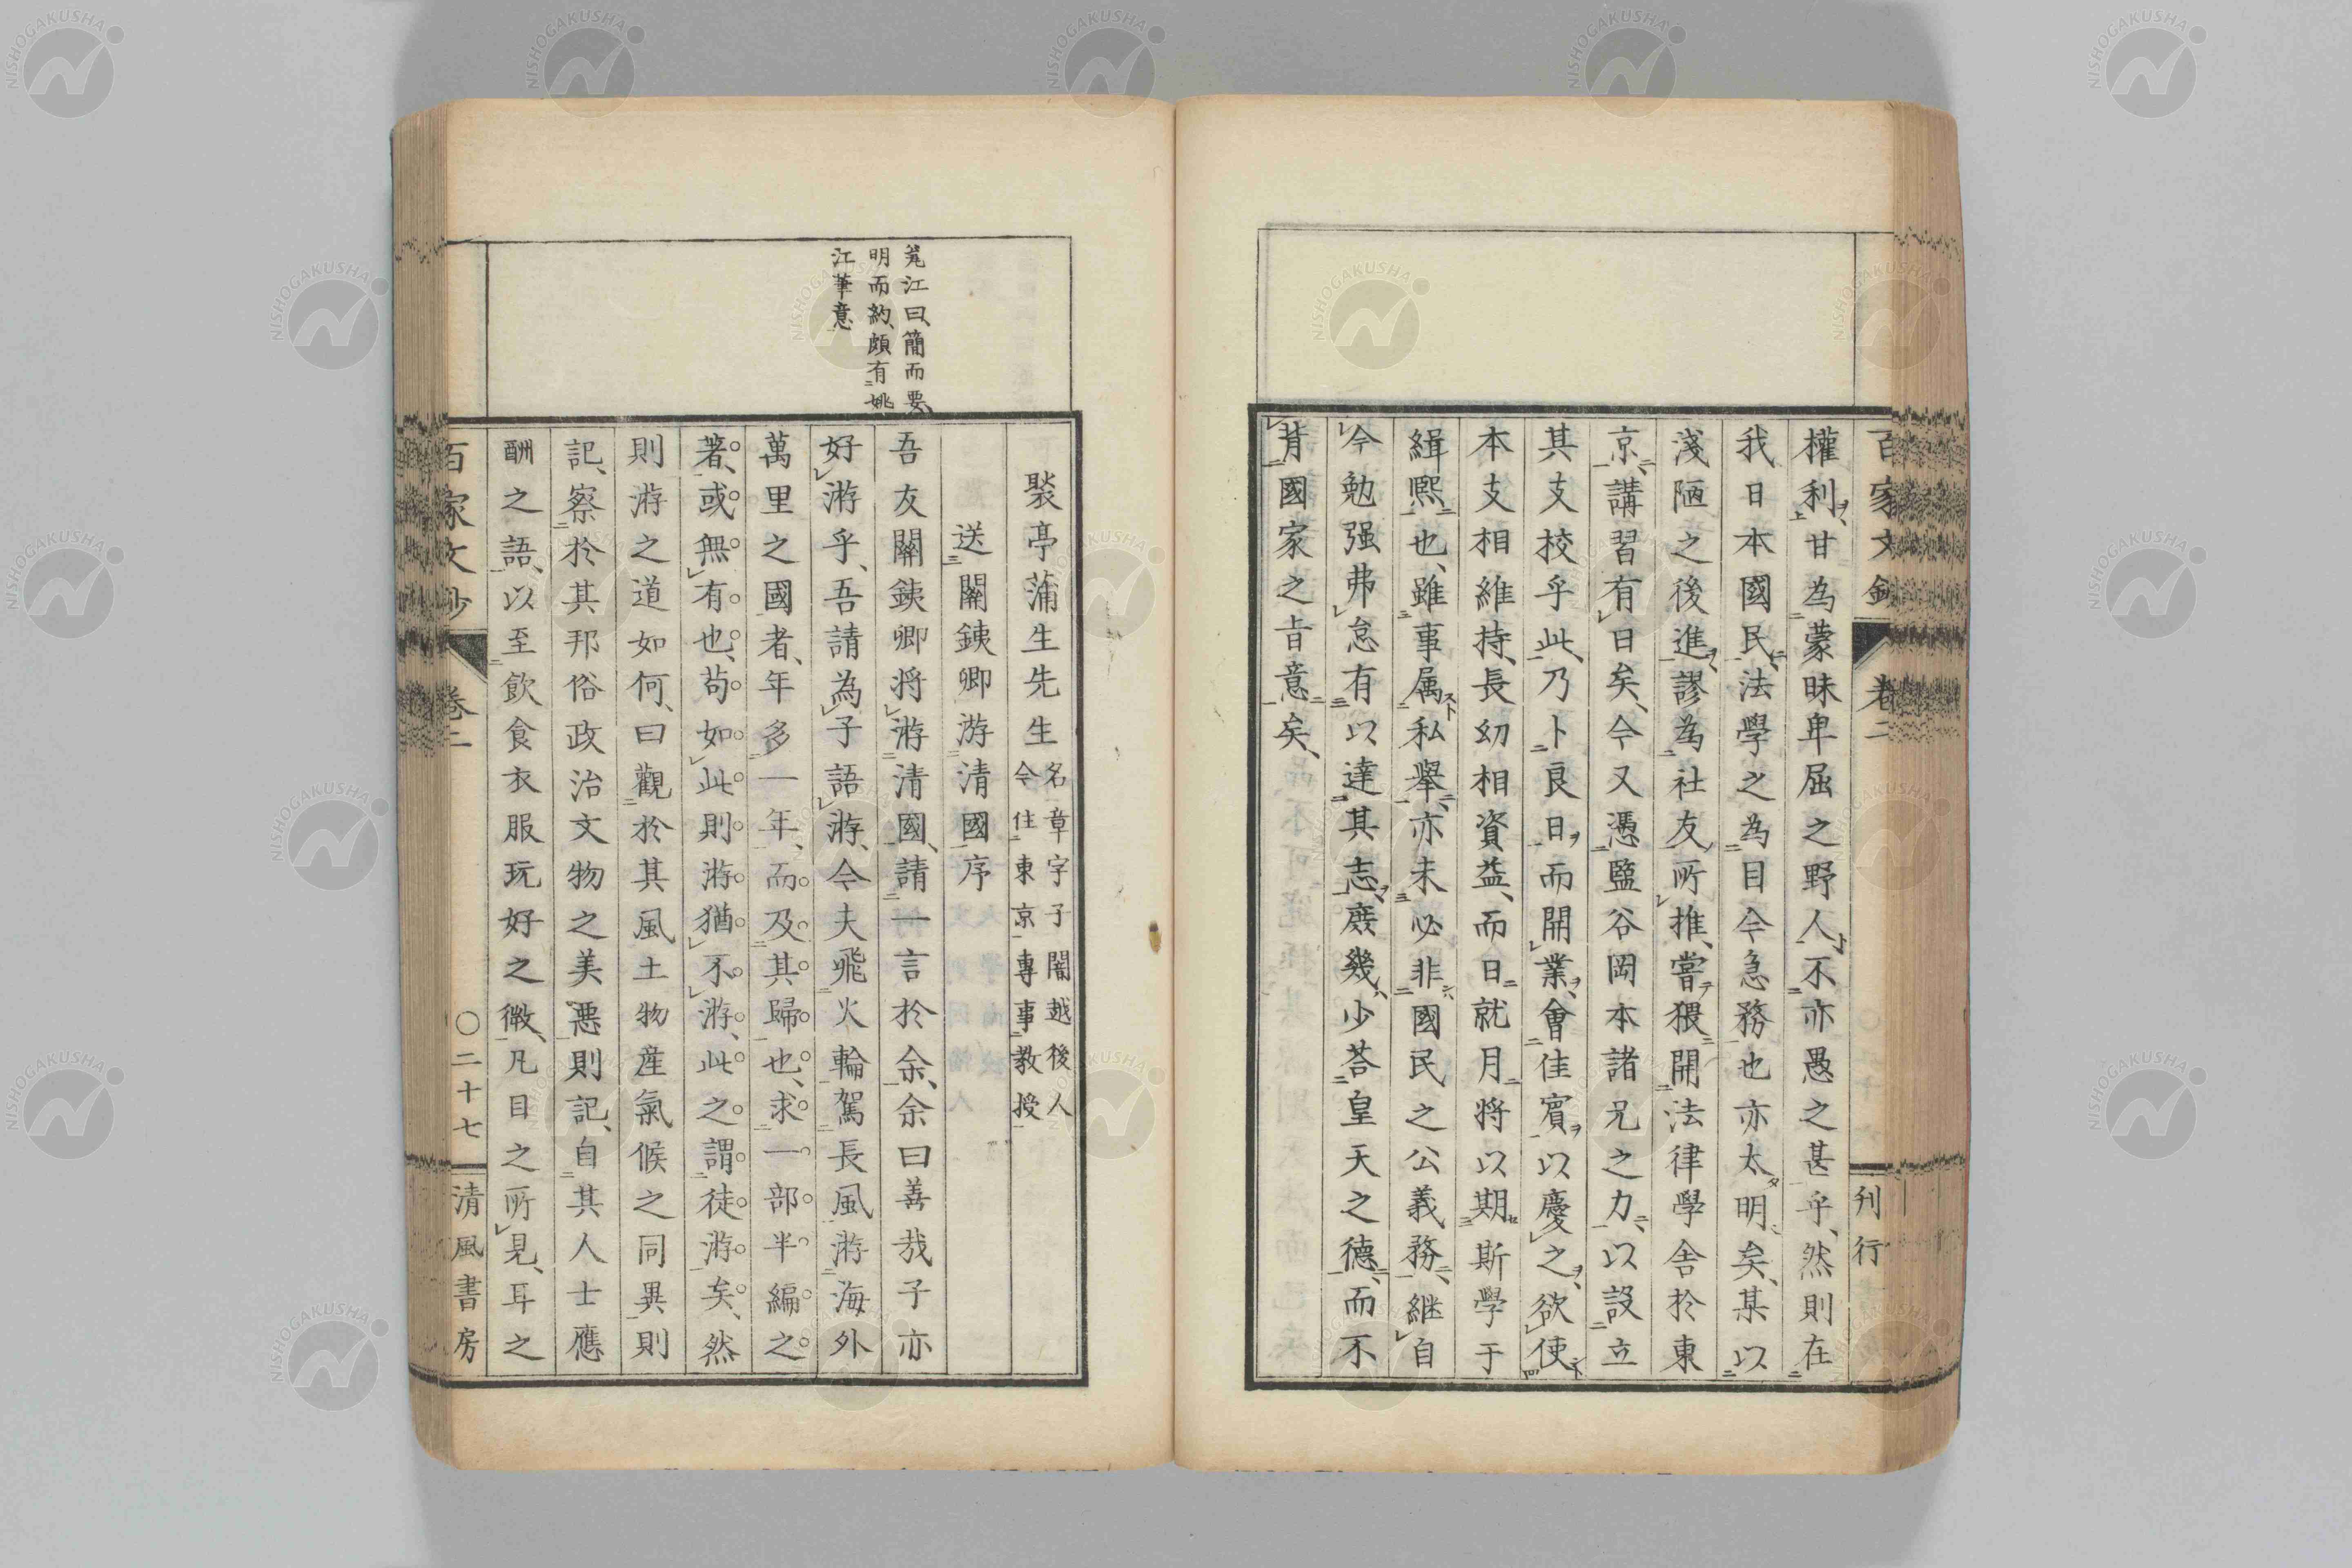 百家文鈔
卷二
刊行
權利甘為蒙昧卑屈之野人不亦愚之甚乎、然則在
我日本國民法學之為目今急務也亦太明矣、某以
淺陋之後進謬為社友所推、嘗猥開法律學舍於東
京、講習有日矣、今又憑鹽谷岡本諸兄之力、以設立
其支校乎此、乃卜良日而開業、會佳賓以慶之、欲使
本支相維持、長幼相資益、而日就月將以期斯學于
緝熙也、雖事属私舉、亦未必非國民之公義務、継自
今勉强弗怠有以達其志、庶幾少荅皇天之德、而不
背國家之旨意矣、
筧江曰、簡而要、
明而約、頗有姚
江筆意
褧亭蒲生先生 名章字子闇越後人
今住東京專事教授
送關鐵卿游清國序
吾友關鐵卿將游清國、請一言於余、余曰善哉子亦
好游乎、吾請為子語游、今夫飛火輪駕長風游海外
萬里之國者、年多一年、而及其歸也、求一部半編之
著、或無有也、苟如此則游猶不游、此之謂徒游矣、然
則游之道如何、曰觀於其風土物產氣候之同異則
記、察於其邦俗政治文物之美惡則記、自其人士應
酬之語、以至飲食衣服玩好之微、凡目之所見、耳之
百家文鈔
卷二
〇二十七
清風書房
NISHOGAKUSHA